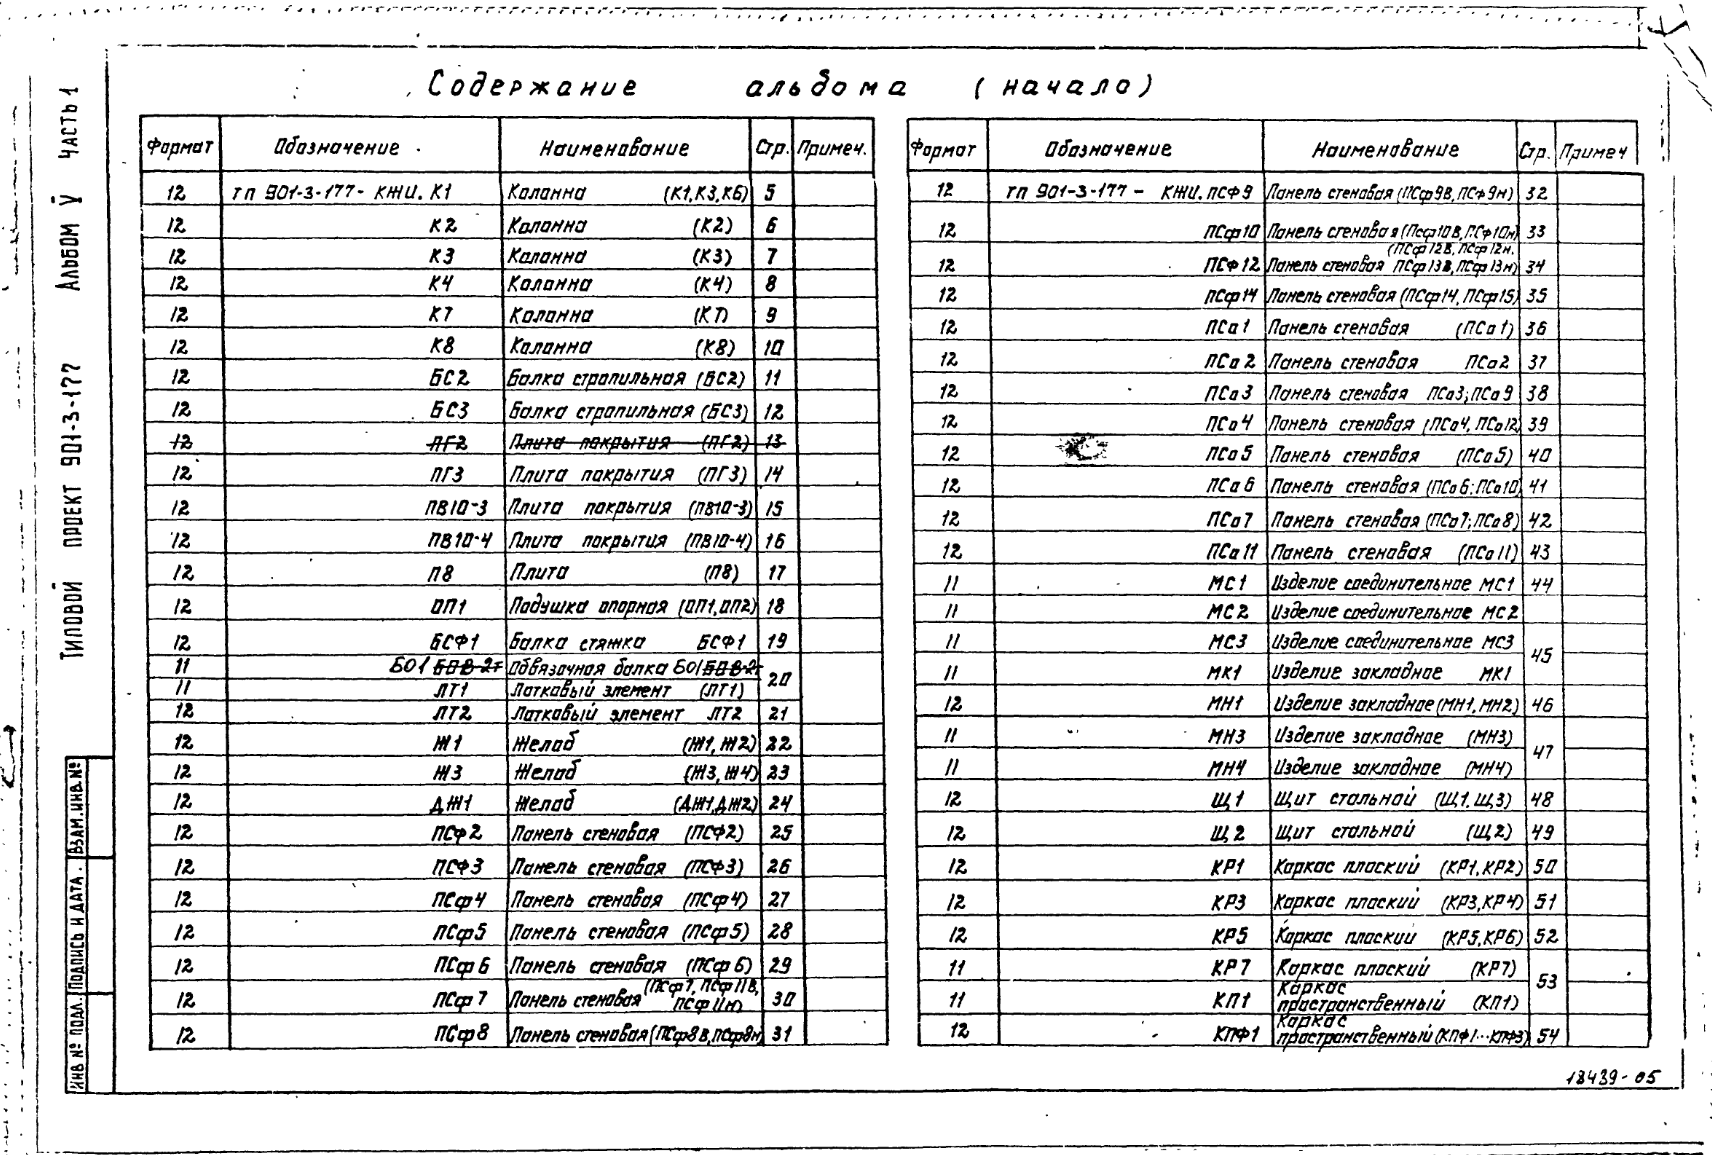 Содержание альбома (начало)
ТИПОВОЙ ПРОЕКТ 901-3-177 АЛЬБОМ V ЧАСТЬ 1
Формат Обозначение Наименование Стр. Примеч.
12 ТП 901-3-177- КЖИ. К1 Колонна (К1,К3,К6) 5
12 К2 Колонна (К2) 6
12 К3 Колонна (К3) 7
12 К4 Колонна (К4) 8
12 К7 Колонна (К7) 9
12 К8 Колонна (К8) 10
12 БС2 Балка стропильная (БС2) 11
12 БС3 Балка стропильная (БС3) 12
12 ПГ2 Плита покрытия (ПГ2) 13
12 ПГ3 Плита покрытия (ПГ3) 14
12 ПВ10-3 Плита покрытия (ПВ10-3) 15
12 ПВ10-4 Плита покрытия (ПВ10-4) 16
12 П8 Плита (П8) 17
12 ОП1 Подушка опорная (ОП1,ОП2) 18
12 БСФ1 Балка стяжка БСФ1 19
11 БО1 Обвязочная балка БО1 20
11 ЛТ1 Лотковый элемент (ЛТ1)
12 ЛТ2 Лотковый элемент ЛТ2 21
12 Ж1 Желоб (Ж1, Ж2) 22
12 Ж3 Желоб (Ж3, Ж4) 23
12 ДЖ1 Желоб (ДЖ1,ДЖ2) 24
12 ПСф2 Панель стеновая (ПСФ2) 25
12 ПСФ3 Панель стеновая (ПСФ3) 26
12 ПСф4 Панель стеновая (ПСф4) 27
12 ПСф5 Панель стеновая (ПСф5) 28
12 ПСф6 Панель стеновая (ПСф6) 29
12 ПСф7 Панель стеновая (ПСф7, ПСф11В, ПСф11н) 30
12 ПСф8 Панель стеновая (ПСф8В,ПСф8н) 31
Формат Обозначение Наименование Стр. Примеч
12 ТП 901-3-177 - КЖИ. ПСФ9 Панель стеновая (ПСф9В, ПСф9н) 32
12 ПСф10 Панель стеновая (ПСф10В, ПСф10н) 33
12 ПСФ12 Панель стеновая (ПСф12В, ПСф12н, ПСф13В, ПСф13н) 34
12 ПСф14 Панель стеновая (ПСф14, ПСф15) 35
12 ПСа1 Панель стеновая (ПСа1) 36
12 ПСа2 Панель стеновая ПСа2 37
12 ПСа3 Панель стеновая ПСа3; ПСа9 38
12 ПСа4 Панель стеновая (ПСа4, ПСа12) 39
12 ПСа5 Панель стеновая (ПСа5) 40
12 ПСа6 Панель стеновая (ПСа6; ПСа10) 41
12 ПСа7 Панель стеновая (ПСа7; ПСа8) 42
12 ПСа11 Панель стеновая (ПСа11) 43
11 МС1 Изделие соединительное МС1 44
11 МС2 Изделие соединительное МС2
11 МС3 Изделие соединительное МС3 45
11 МК1 Изделие закладное МК1
12 МН1 Изделие закладное (МН1, МН2) 46
11 МН3 Изделие закладное (МН3) 47
11 МН4 Изделие закладное (МН4)
12 Щ1 Щит стальной (Щ1, Щ3) 48
12 Щ2 Щит стальной (Щ2) 49
12 КР1 Каркас плоский (КР1, КР2) 50
12 КР3 Каркас плоский (КР3, КР4) 51
12 КР5 Каркас плоский (КР5, КР6) 52
11 КР7 Каркас плоский (КР7) 53
11 КП1 Каркас пространственный (КП1)
12 КПФ1 Каркас пространственный (КПФ1...КПФ3) 54
ИНВ № ПОДЛ. ПОДПИСЬ И ДАТА. ВЗАМ.ИНВ.№
18439-05